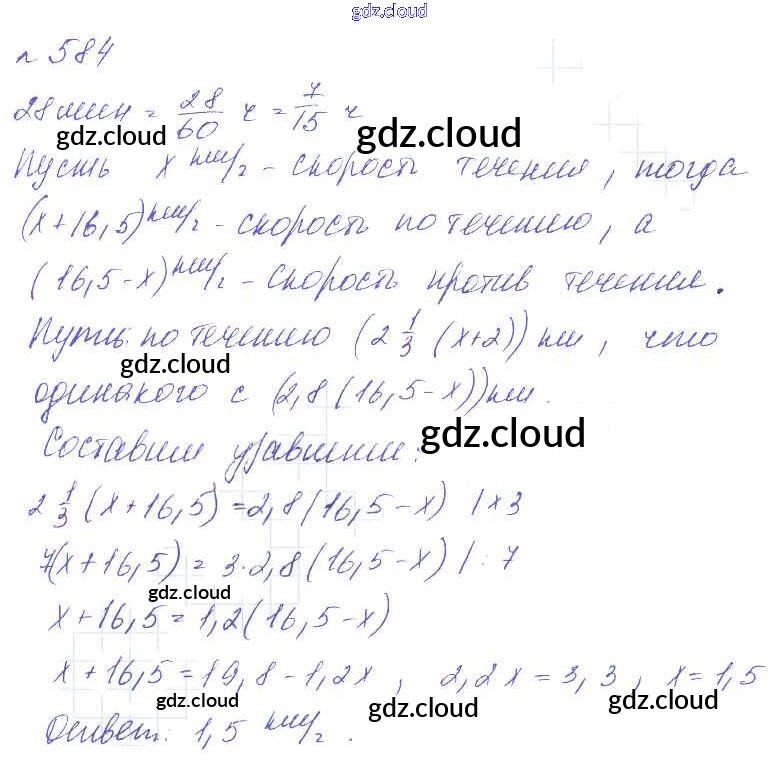 gdz.cloud
№ 584
28 мин = 28/60 ч = 7/15 ч
gdz.cloud gdz.cloud
Пусть x км/ч - скорость течения, тогда
(x+16,5) км/ч - скорость по течению, а
(16,5-x) км/ч - скорость против течения.
Путь по течению (2 1/3 (x+2)) км, что
gdz.cloud
одинакого с (2,8(16,5-x)) км.
gdz.cloud
Составим уравнение:
2 1/3 (x+16,5) = 2,8(16,5-x) | x3
7(x+16,5) = 3·2,8(16,5-x) | :7
gdz.cloud
x+16,5 = 1,2(16,5-x)
gdz.cloud
x+16,5 = 19,8-1,2x, 2,2x = 3,3, x = 1,5
gdz.cloud gdz.cloud gdz.cloud
Ответ: 1,5 км/ч.